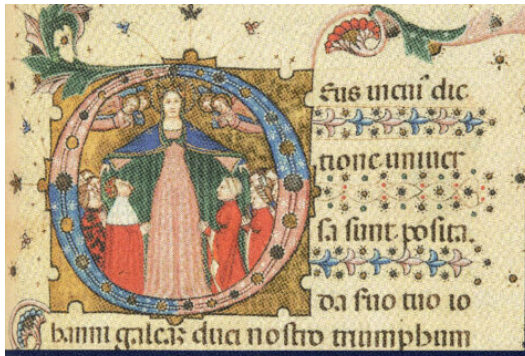 Eus incuiꝰ dic
tione uniuer
sa sunt posita.
da suo tuo io
hanni galeaz duci nostro triumphum